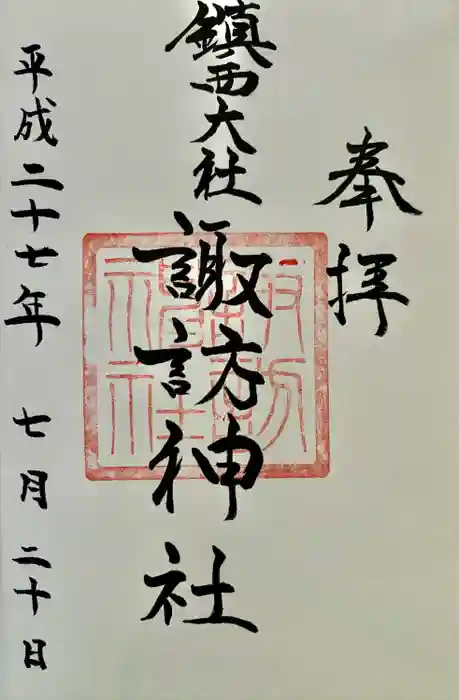 奉拝
鎮西大社
諏訪神社
平成二十七年 七月 二十日